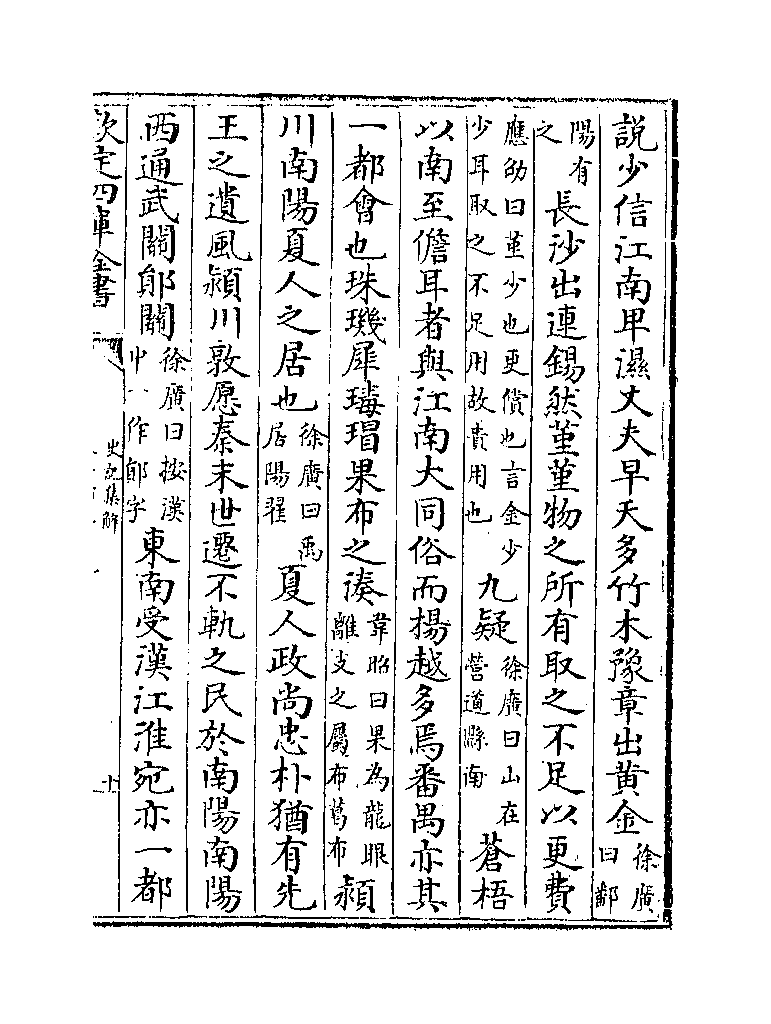 說少信江南卑濕丈夫早夭多竹木豫章出黄金徐廣曰鄱
陽有之長沙出連錫然堇堇物之所有取之不足以更費
應劭曰堇少也更償也言金少少耳取之不足用故責用也九疑徐廣曰山在營道縣南蒼梧
以南至儋耳者與江南大同俗而揚越多焉番禺亦其
一都會也珠璣犀瑇瑁果布之湊韋昭曰果為龍眼離支之屬布葛布潁
川南陽夏人之居也徐廣曰禹居陽翟夏人政尚忠朴猶有先
王之遺風潁川敦愿秦末世遷不軌之民於南陽南陽
西通武關鄖關徐廣曰按漢中一作鄖字東南受漢江淮宛亦一都
欽定四庫全書
史記集解
十